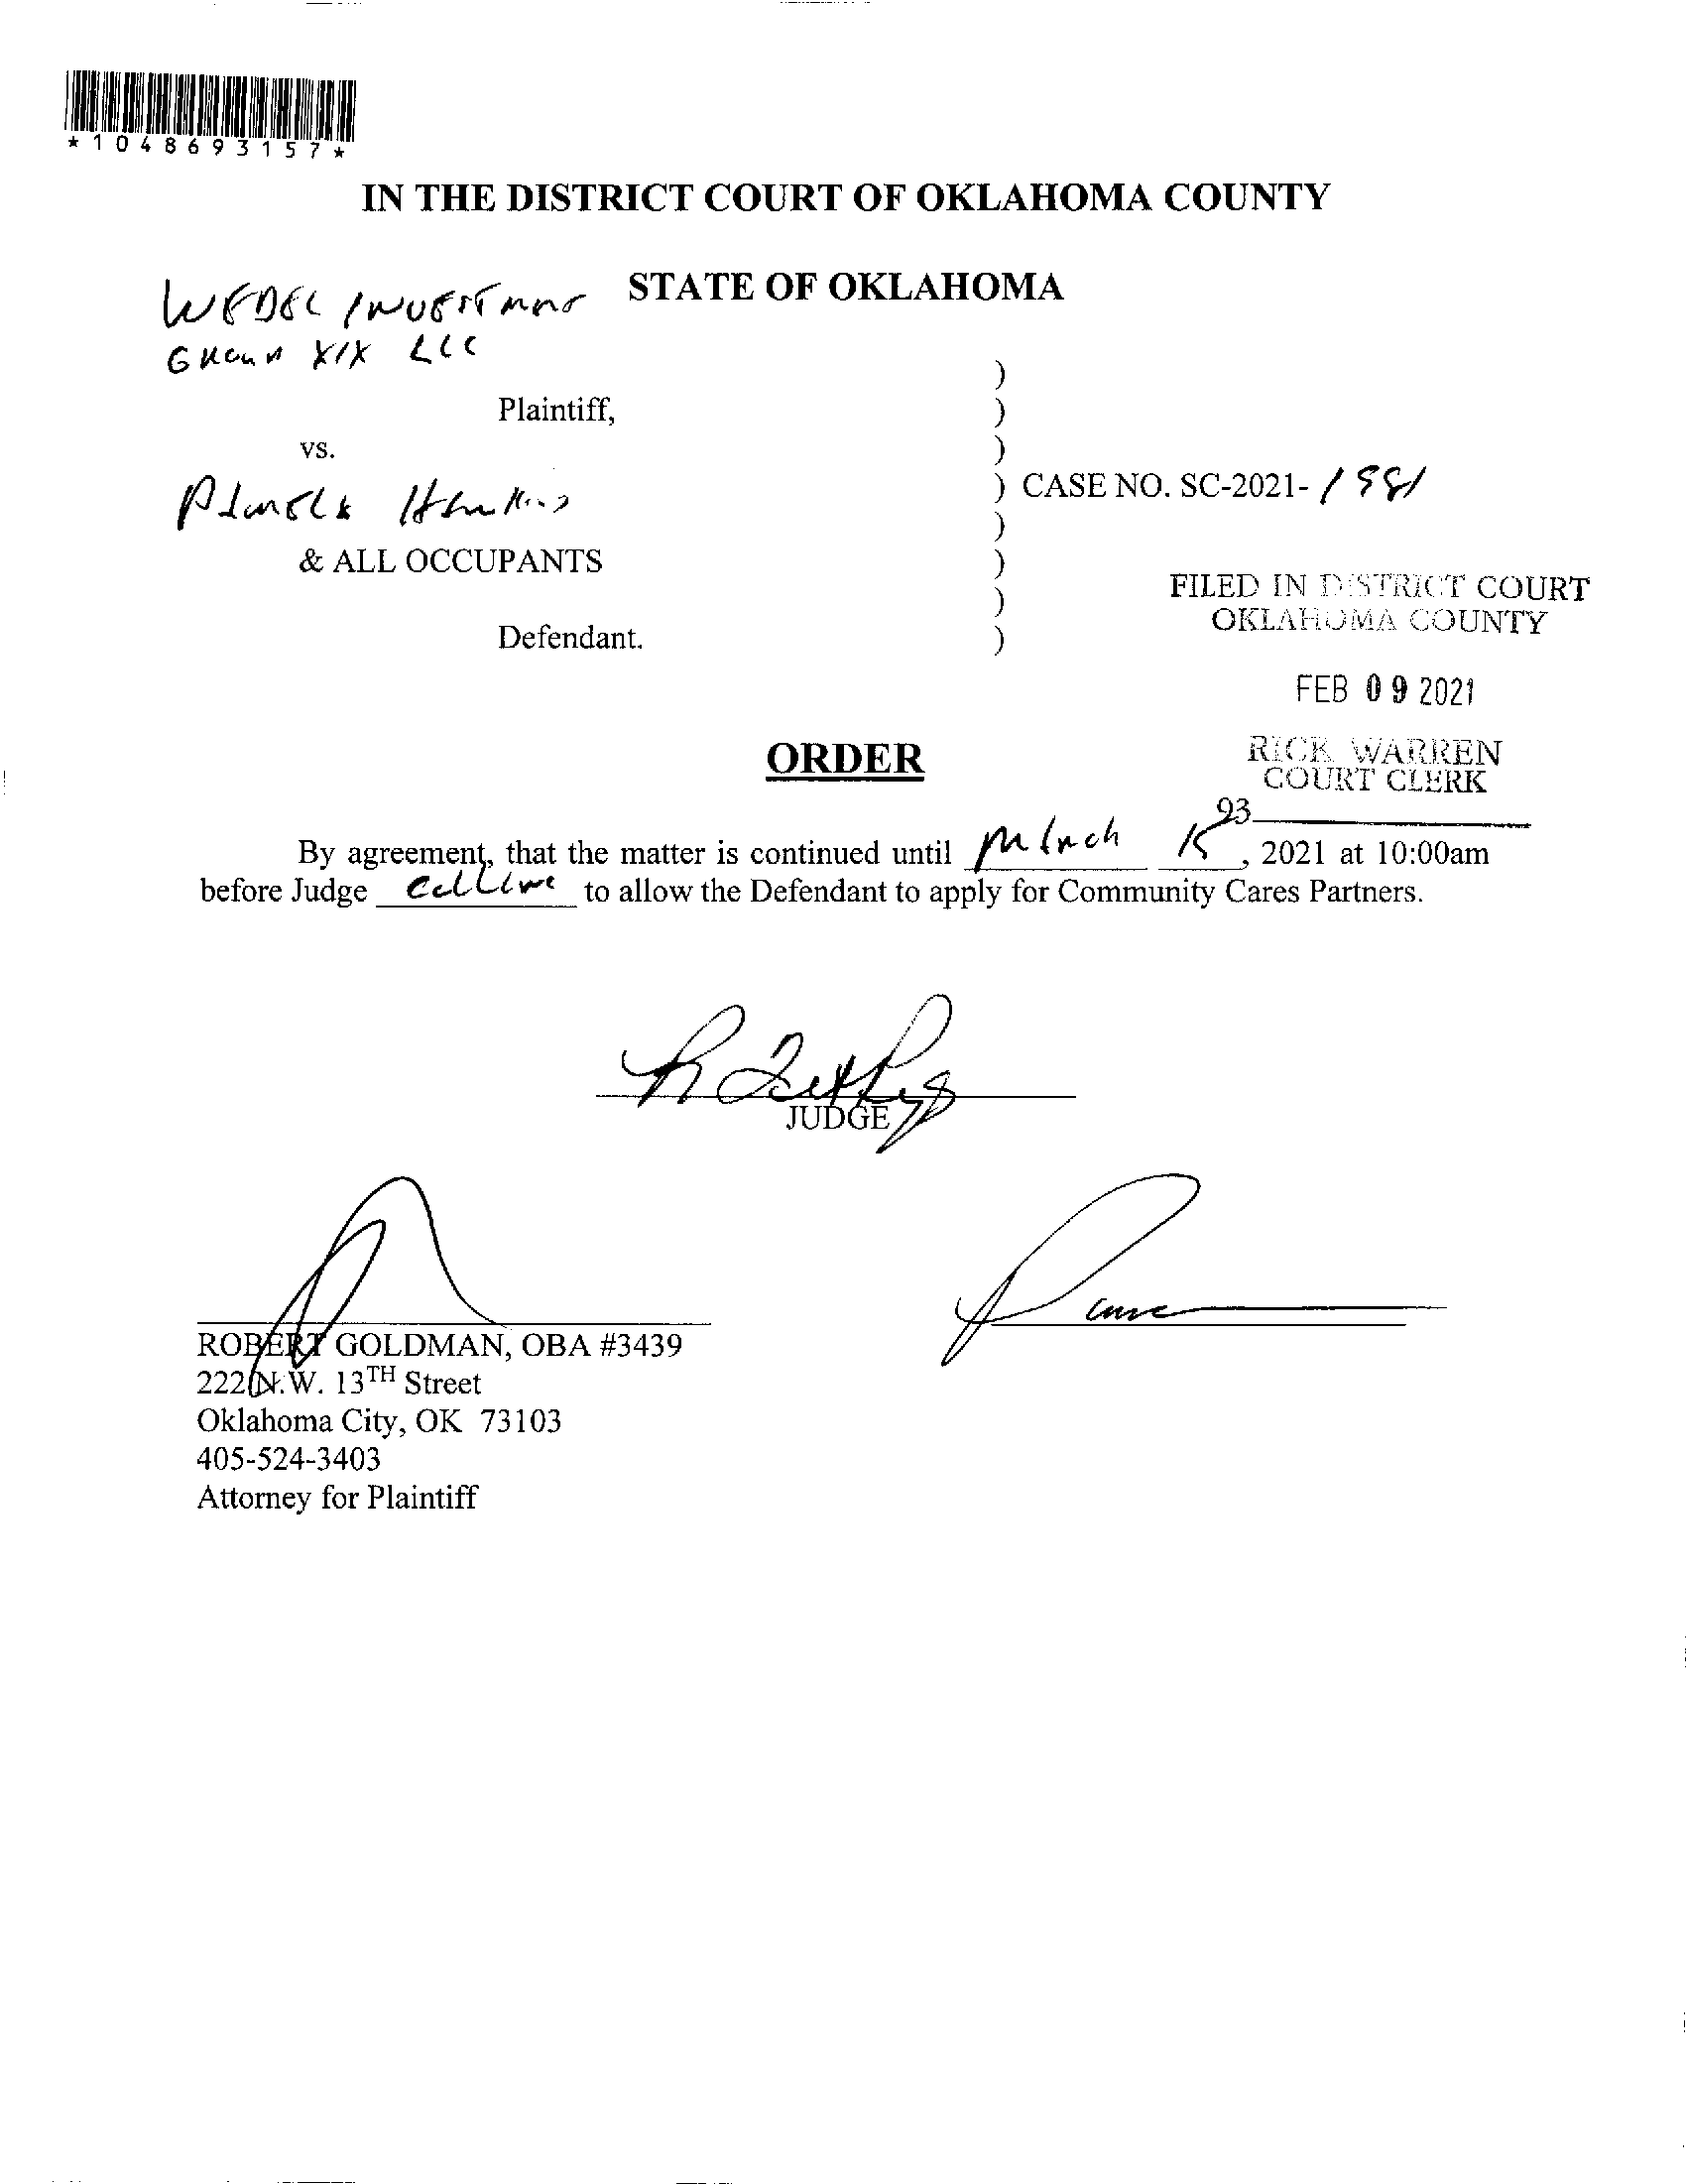 *1048693157*
IN THE DISTRICT COURT OF OKLAHOMA COUNTY
STATE OF OKLAHOMA
WEDEL INVESTMENT
GROUP XIX LLC
)
Plaintiff, )
vs. )
PAMELA ) CASE NO. SC-2021-
)
& ALL OCCUPANTS )
FILED IN DISTRICT COURT
)
OKLAHOMA COUNTY
Defendant. )
FEB 09 2021
ORDER
RICK WARREN
COURT CLERK
93
By agreement, that the matter is continued until March 15, 2021 at 10:00am
before Judge to allow the Defendant to apply for Community Cares Partners.
JUDGE
ROBERT GOLDMAN, OBA #3439
222 N.W. 13TH Street
Oklahoma City, OK 73103
405-524-3403
Attorney for Plaintiff